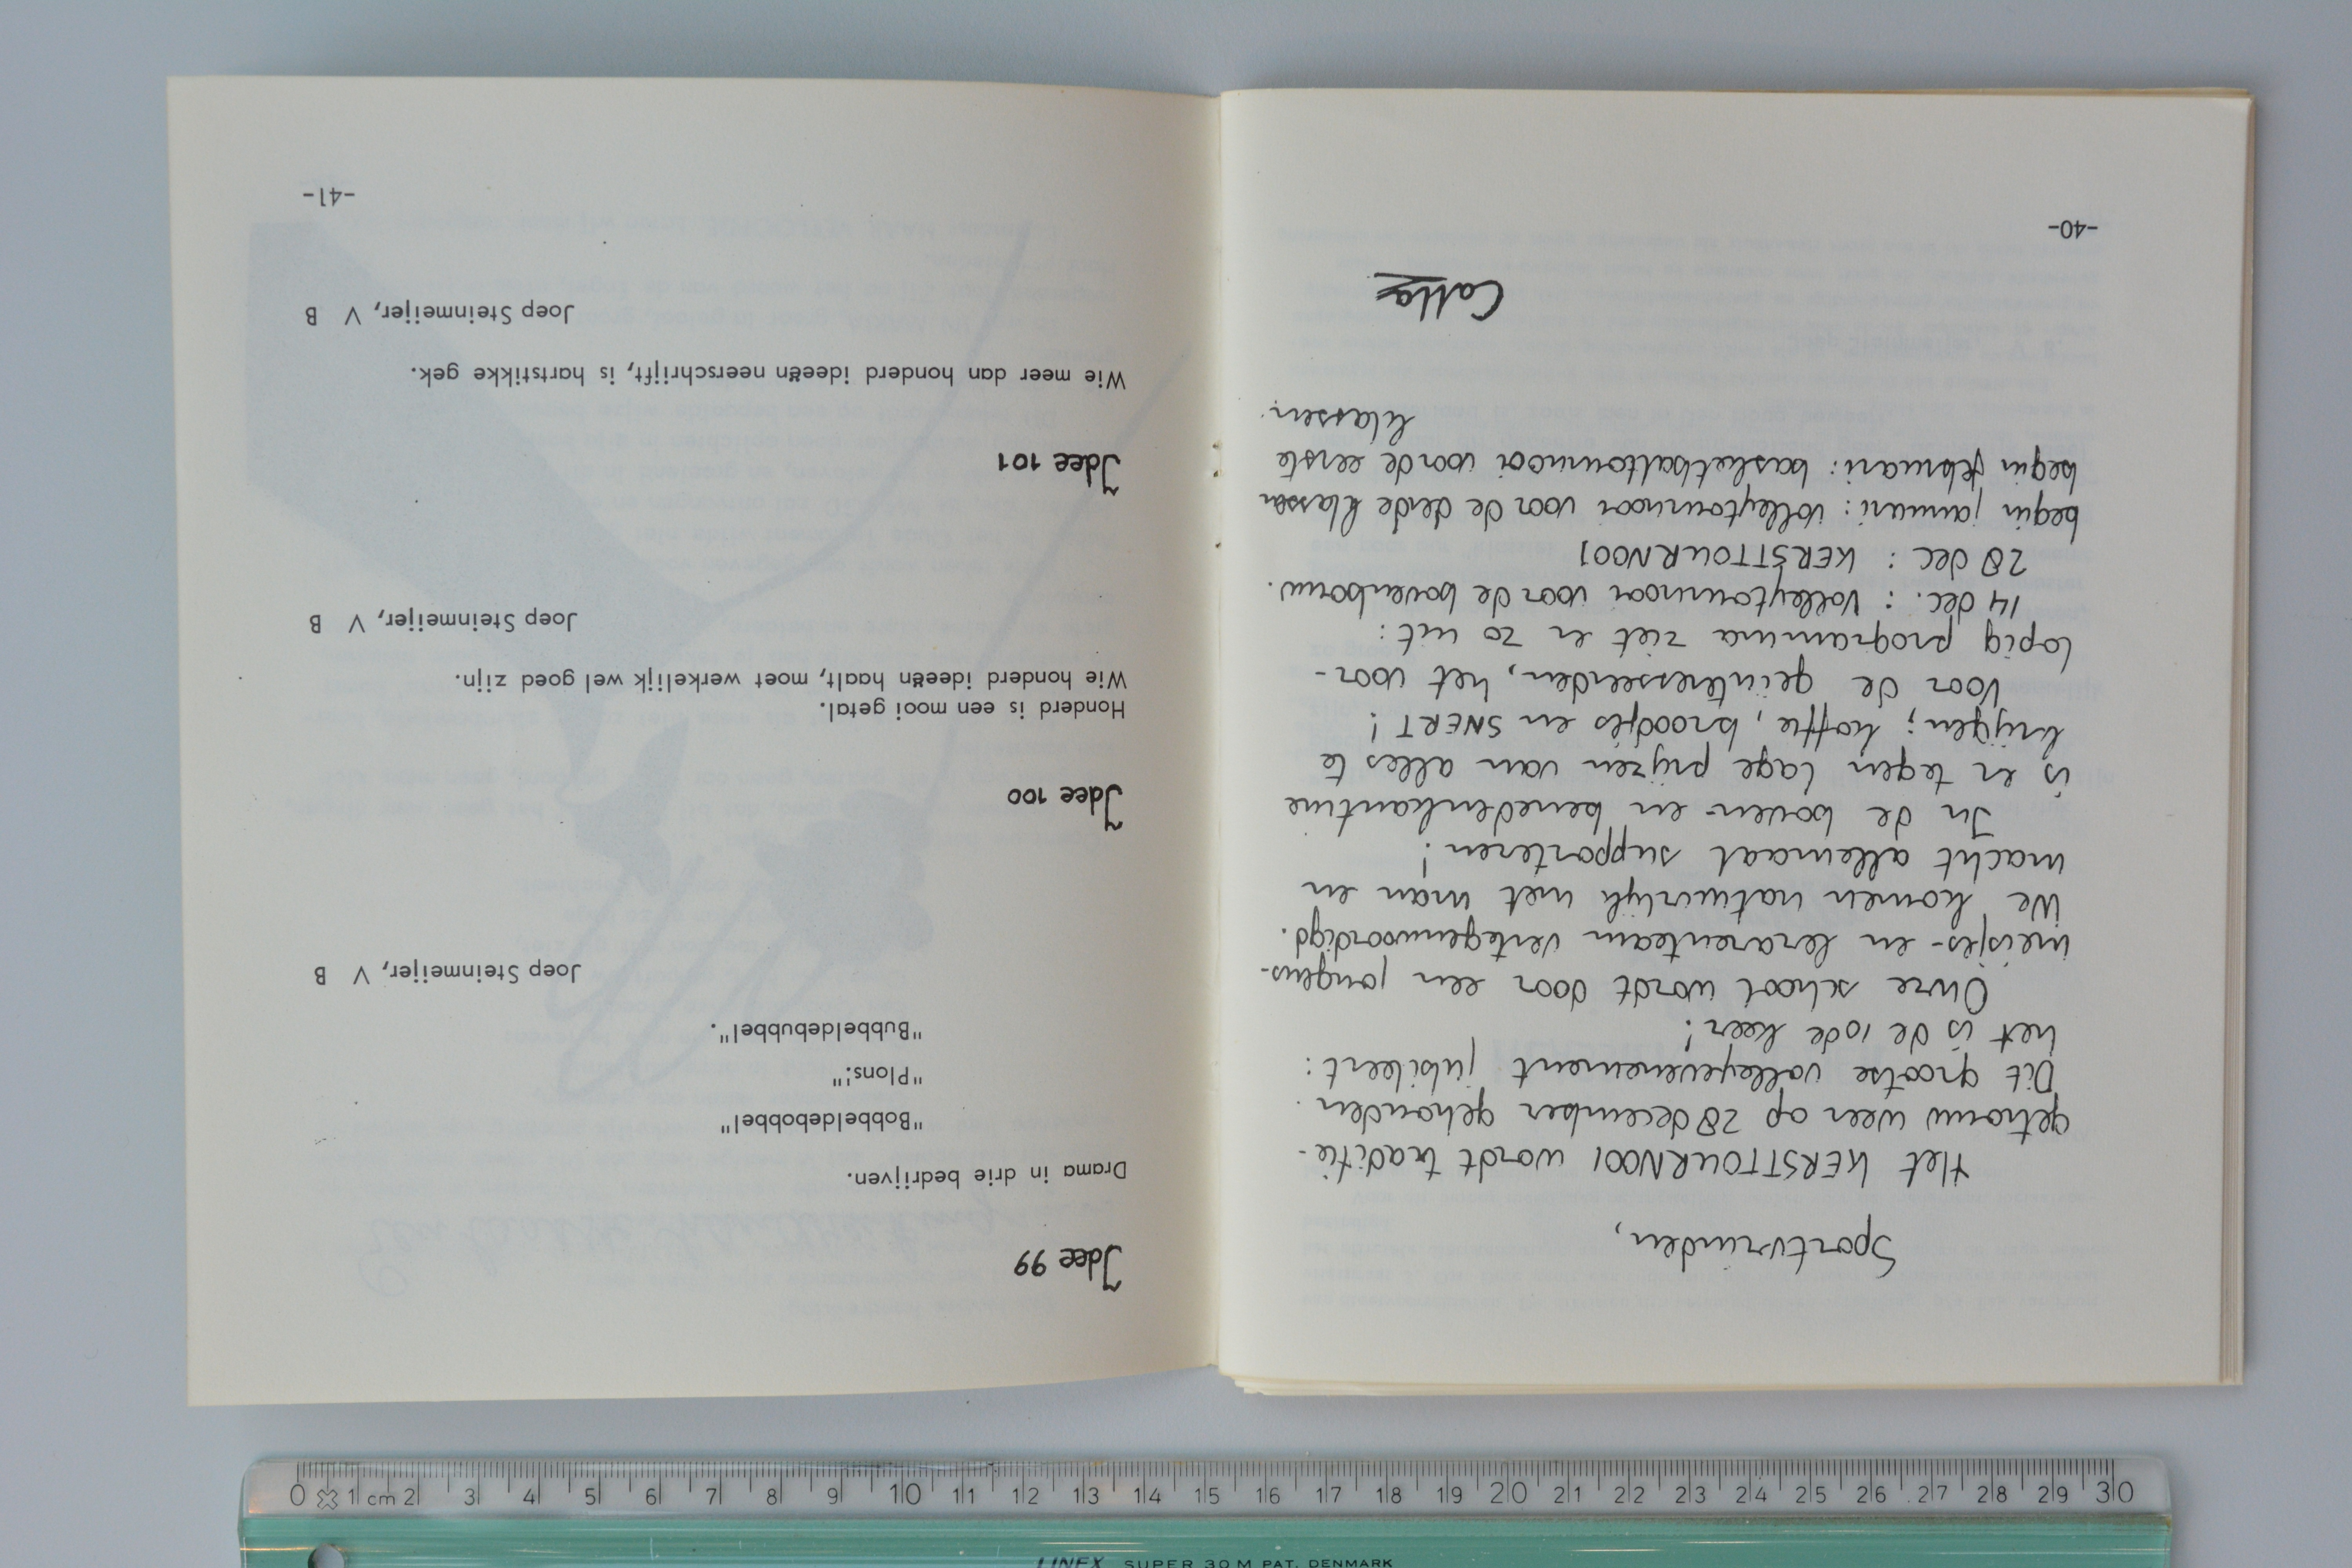 Sportvrinden,
Het KERSTTOURNOOI wordt traditie-
getrouw weer op 28 december gehouden.
Dit grootse volleyevenement jubileert:
het is de 10de keer!
Onze school wordt door een jongens-
meisjes- en lerarenteam vertegenwoordigd.
We komen natuurlijk met man en
macht allemaal supporteren!
In de boven- en benedenkantine
is er tegen lage prijzen van alles te
krijgen; koffie, broodjes en SNERT!
Voor de geïnteresseerden, het voor-
lopig programma ziet er zo uit:
14 dec. : Volleytournooi voor de bovenbouw.
28 dec : KERSTTOURNOOI
begin januari: volleytournooi voor de derde klassen
begin februari: basketbaltournooi voor de eerste
klassen.
-40-
Idee 99
Drama in drie bedrijven.
"Bobbeldebobbel"
"Plons!"
"Bubbeldebubbel".
Joep Steinmeijer, V B
Idee 100
Honderd is een mooi getal.
Wie honderd ideeën haalt, moet werkelijk wel goed zijn.
Joep Steinmeijer, V B
Idee 101
Wie meer dan honderd ideeën neerschrijft, is hartstikke gek.
Joep Steinmeijer, V B
-41-
0 1 cm 2 3 4 5 6 7 8 9 10 11 12 13 14 15 16 17 18 19 20 21 22 23 24 25 26 27 28 29 30
LINEX SUPER 30 M PAT. DENMARK